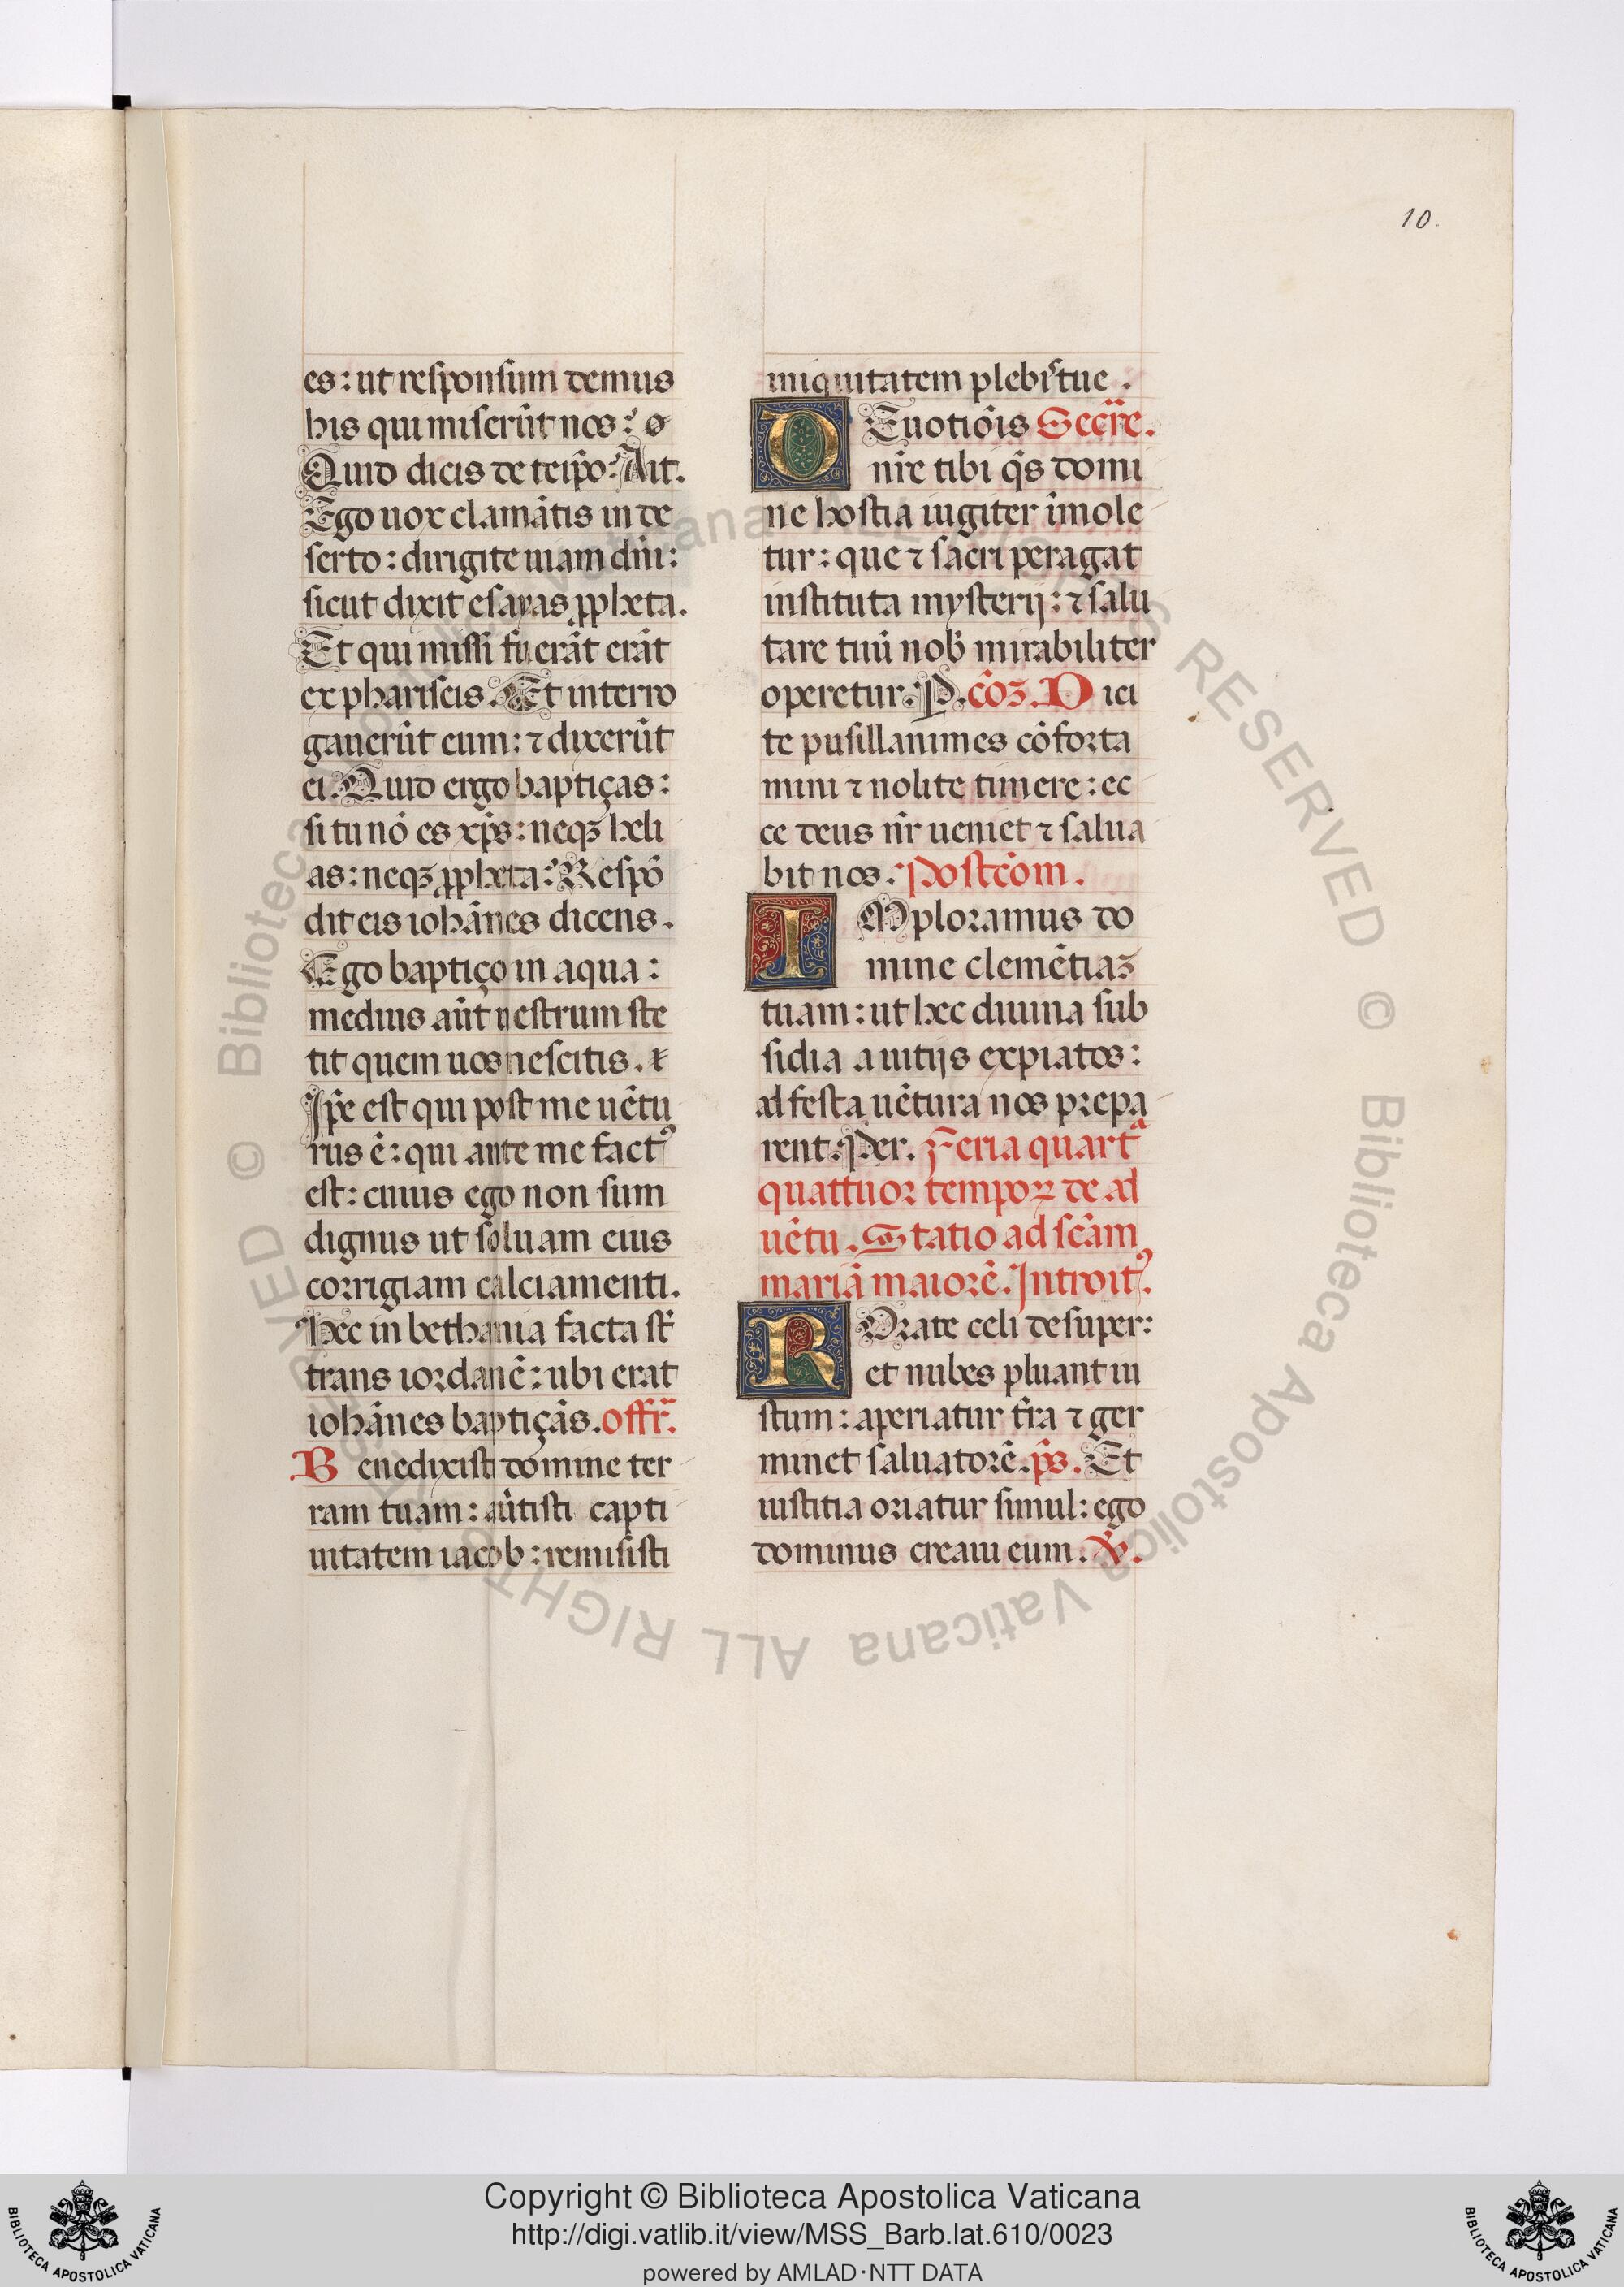 10.
es: ut responsum demus
his qui miserūt nos:
Quid dicis de teip̄o: Ait.
Ego uox clamātis in de
serto: dirigite uiam dn̄i:
sicut dixit esayas ꝓpheta.
Et qui missi fuerāt erāt
ex phariseis. Et interro
gauerūt eum: ⁊ dixerūt
ei. Quid ergo baptiças:
si tu nō es xp̄s: neqꝫ heli
as: neqꝫ ꝓpheta: Respō
dit eis iohānes dicens.
Ego baptiço in aqua:
medius aūt uestrum ste
tit quem uos nescitis.
Ip̄e est qui post me uētu
rus ē: qui ante me factꝰ
est: cuius ego non sum
dignus ut soluam eius
corrigiam calciamenti.
Hec in bethania facta st̄
trans iordanē: ubi erat
iohānes baptiçās. Offr̄.
Benedixisti domine ter
ram tuam: aūtisti capti
uitatem iacob: remisisti
iniquitatem plebis tue.
Deuotiōis Secre.
nr̄e tibi q̄s domi
ne hostia iugiter īmole
tur: que ⁊ sacri peragat
instituta mysterij: ⁊ salu
tare tuū nob̄ mirabiliter
operetur. P. cōꝫ. Dici
te pusillanimes cōforta
mini ⁊ nolite timere: ec
ce deus nr̄ ueniet ⁊ salua
bit nos. Postcōm.
IMploramus do
mine clemētiaꝫ
tuam: ut hec diuina sub
sidia a uitijs expiatos:
ad festa uētura nos prepa
rent. Per. Feria quartᵃ
quattuor tempoꝝ de ad
uētu. Statio ad scām
mariā maiorē. Introitꝰ.
ROrate celi desuper:
et nubes pluant iu
stum: aperiatur t̄ra ⁊ ger
minet saluatorē. p̄s. Et
iustitia oriatur simul: ego
dominus creaui eum. ℣.
Copyright © Biblioteca Apostolica Vaticana
http://digi.vatlib.it/view/MSS_Barb.lat.610/0023
powered by AMLAD·NTT DATA
BIBLIOTECA APOSTOLICA VATICANA
BIBLIOTECA APOSTOLICA VATICANA
© Biblioteca Apostolica Vaticana ALL RIGHTS RESERVED © Biblioteca Apostolica Vaticana ALL RIGHTS RESERVED